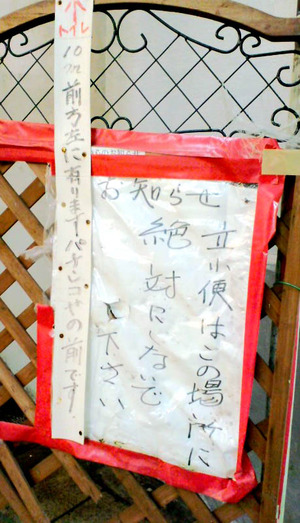 お知らせ
立小便はこの場所に
絶対にしないで
下さい
トイレ
10m前方左に有ります！パチンコヤの前です。